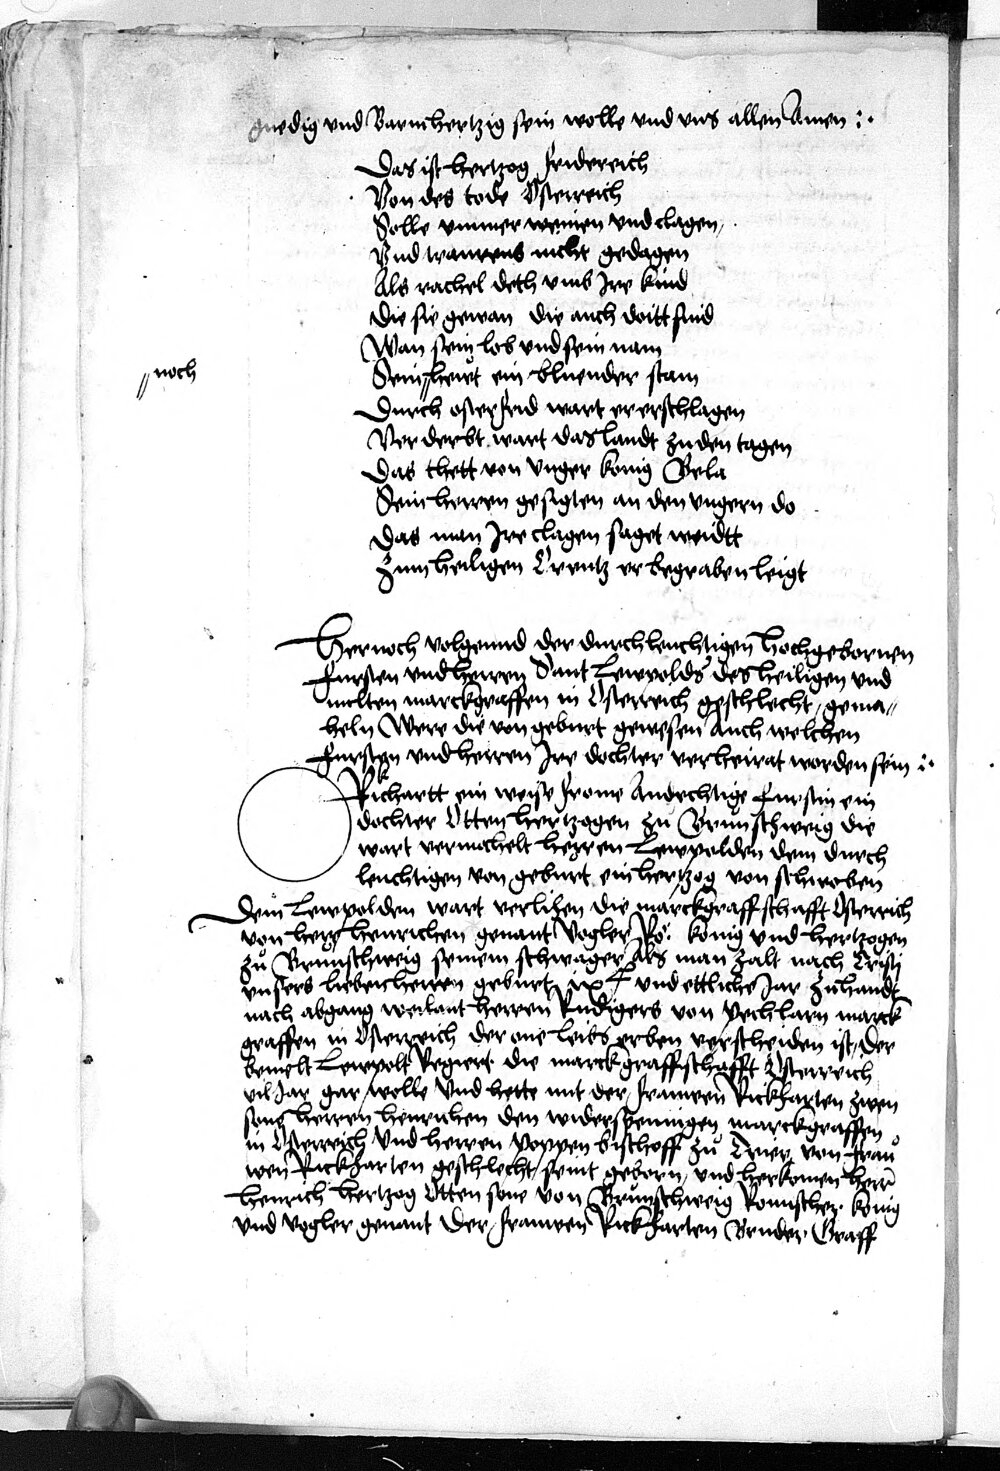 gnedig vnd Barmhertzig sein wolle vnd vns allen Amen :.
Das ist hertzog fridereich
Von des tode Osterreich
Solle ymmer weinen vnd clagen,
Vnd traurens nicht gedagen
Als rachel deth vmb Ire kind
Die sie gewan die auch doitt sind
Wan sein lob vnd sein nam
//noch
Sein//heut ein bluender stam
Durch oster frid wart er erschlagen
Verderbt wart das landt zu den tagen
Das thett von Vnger konig Bela
Sein herren gesigten an den vngern do
Das man Ire clagen saget weidtt
Zum heiligen Creutz er begraben leigt
Hernoch volgennd der durchleuchtigen hochgebornen
fursten vnd herren Sant Lewpolds des heiligen vnd
milten marckgraffen in Osterreich geschlecht, gema//
heln Were die von geburt gewesen Auch welchen
fursten vnd herren Ire dochter verheirat worden sein :.
Richartt ein weise frome Andechtige furstin ein
dochter Otten hertzogen zu Brunschweig die
wart vermahelt herren Lewpolden dem durch
leuchtigen von geburt ein hertzog von schwoben
Dem Lewpolden wart verlihen die marckgraffschafft Osterrich
von herr henrichen genant Vogler Ro: konig vnd hertzogen
zu Brunschweig seinem schwager Als man zalt nach Cristi
vnsers lieben herren geburt ix C vnd ettliche Jar zuhandt
nach abgang weilant herren Rudigers von Pechlarn marck
graffen in Osterreich der one leibs erben verscheiden ist, Der
bemelt Lewpolt Regiert die marckgraffschafft Osterreich
vil Jar gar wolle Vnd hette mit der frauwen Rickharten zwen
sone herren henrichen den widerspennigen marckgraffen
in Osterreich Vnd herren poppen bischoff zu Trier, von frau
wen Rickharten geschlecht, seint geborn, vnd herkomen herr
henrich hertzog Otten sone von Brunschweig Romischer konig
vnd vogler genant Der frauwen Rickharten Bruder. Graff